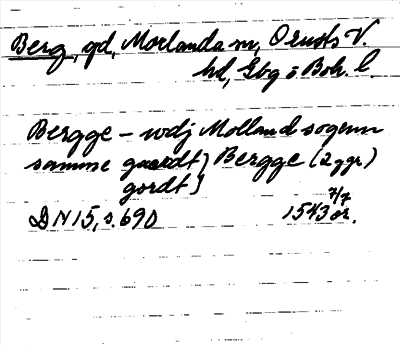 Berg, gd, Morlanda sn, Orusts V.
hd, Gbg o Boh. l.
Bergge – wdj Molland sogenn
samme gaardt) Bergge (2 ggr)
gordt)
DN 15, s. 690 1543 7/7 or.